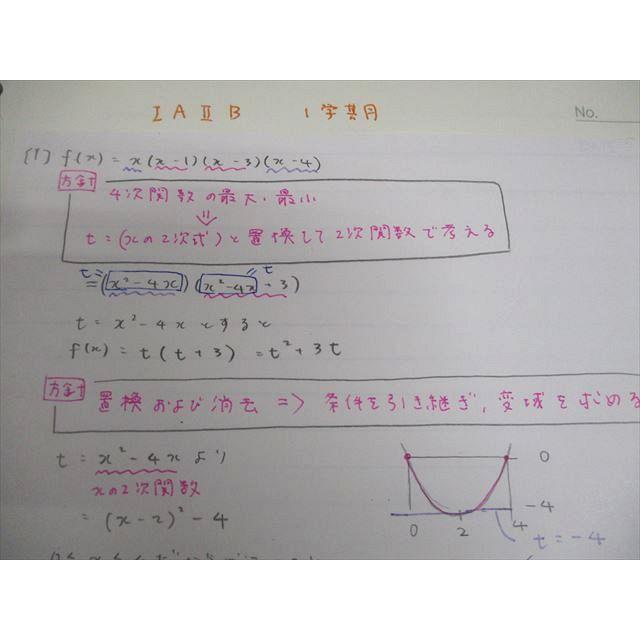 ⅠAⅡB 1学期 No.
[1] f(x) = x(x-1)(x-3)(x-4)
方針 4次関数の最大・最小
⇓
t=(xの2次式)と置換して2次関数で考える
t= =t
=(x²-4x)(x²-4x+3)
t = x²-4x とすると
f(x) = t(t+3) = t²+3t
方針 置換および消去 => 条件を引き継ぎ,変域を求める
t = x²-4x より
xの2次関数
= (x-2)²-4
0
-4
0 2 4
t=-4